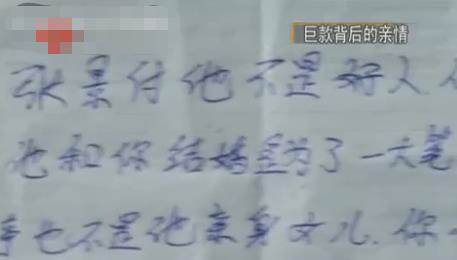 巨款背后的亲情
张景付他不是好人
他和你结婚是为了一大笔
也不是他亲身女儿.你